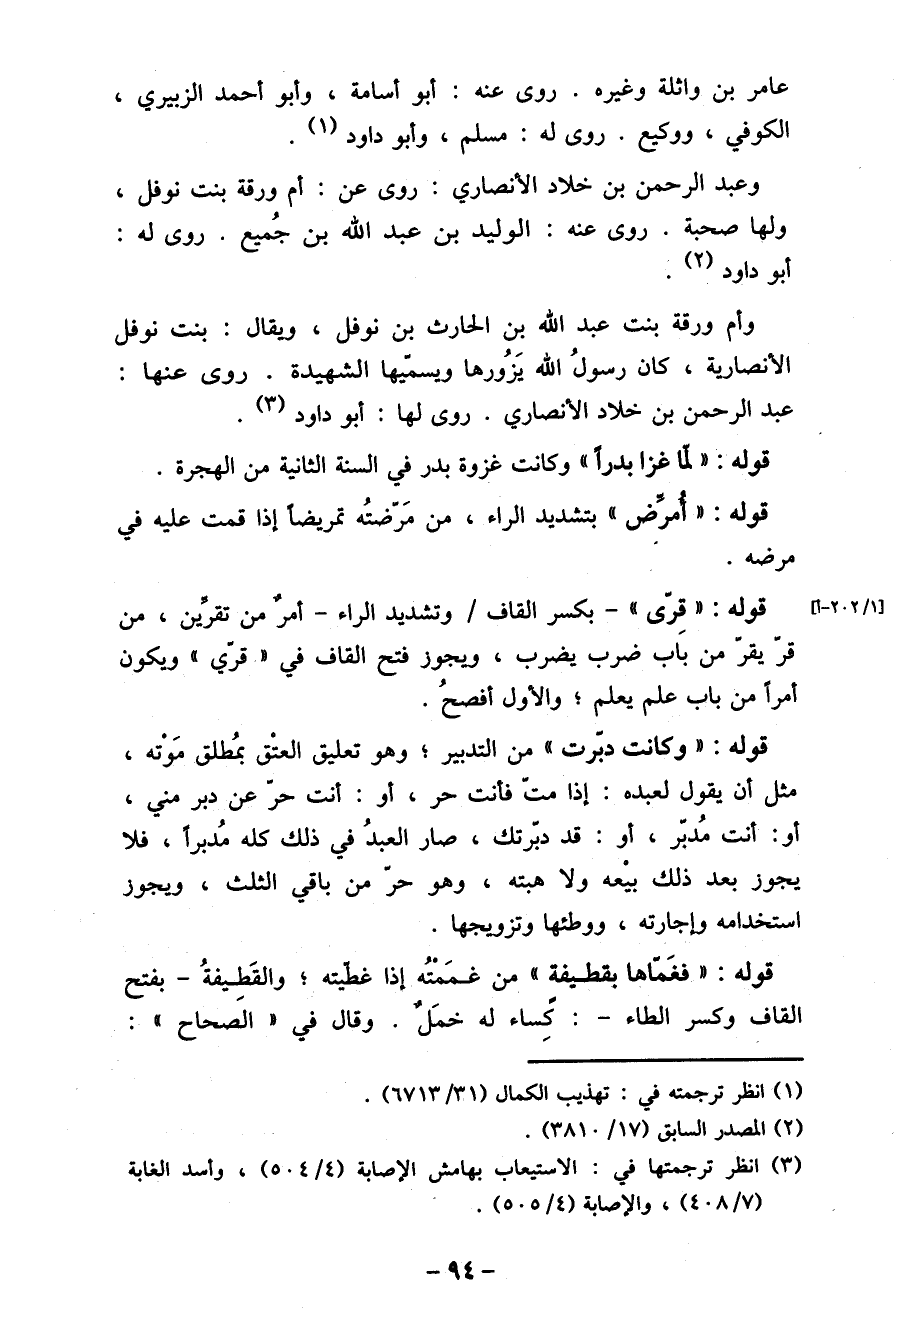 عامر بن واثلة وغيره . روى عنه : أبو أسامة ، وأبو أحمد الزبيري ،
الكوفي ، ووكيع . روى له : مسلم ، وأبو داود (١) .
وعبد الرحمن بن خلاد الأنصاري : روى عن : أم ورقة بنت نوفل ،
ولها صحبة . روى عنه : الوليد بن عبد الله بن جُميع . روى له :
أبو داود (٢) .
وأم ورقة بنت عبد الله بن الحارث بن نوفل ، ويقال : بنت نوفل
الأنصارية ، كان رسولُ الله يَزُورها ويسمّيها الشهيدة . روى عنها :
عبد الرحمن بن خلاد الأنصاري . روى لها : أبو داود (٣) .
قوله : « لمّا غزا بدراً » وكانت غزوة بدر في السنة الثانية من الهجرة .
قوله : « أُمرِّض » بتشديد الراء ، من مَرّضتُه تمريضاً إذا قمت عليه في
مرضه .
قوله : « قِرّى » – بكسر القاف / وتشديد الراء – أمرٌ من تقرِّين ، من [١/٢٠٢-أ]
قرّ يقرّ من باب ضرب يضرب ، ويجوز فتح القاف في « قرّي » ويكون
أمراً من باب علم يعلم ؛ والأول أفصحُ .
قوله : « وكانت دبّرت » من التدبير ؛ وهو تعليق العتْق بمُطلق مَوْته ،
مثل أن يقول لعبده : إذا متّ فأنت حر ، أو : أنت حرّ عن دبر مني ،
أو: أنت مُدبّر ، أو : قد دبّرتك ، صار العبدُ في ذلك كله مُدبراً ، فلا
يجوز بعد ذلك بيْعه ولا هبته ، وهو حرّ من باقي الثلث ، ويجوز
استخدامه وإجارته ، ووطئها وتزويجها .
قوله : « فغَمّاها بقطيفة » من غممْتُه إذا غطّيته ؛ والقَطِيفةُ – بفتح
القاف وكسر الطاء – : كِساء له خمَلٌ . وقال في « الصحاح » :
(١) انظر ترجمته في : تهذيب الكمال (٦٧١٣/٣١) .
(٢) المصدر السابق (٣٨١٠/١٧) .
(٣) انظر ترجمتها في : الاستيعاب بهامش الإصابة (٥٠٤/٤) ، وأسد الغابة
(٤٠٨/٧) ، والإصابة (٥٠٥/٤) .
– ٩٤ –